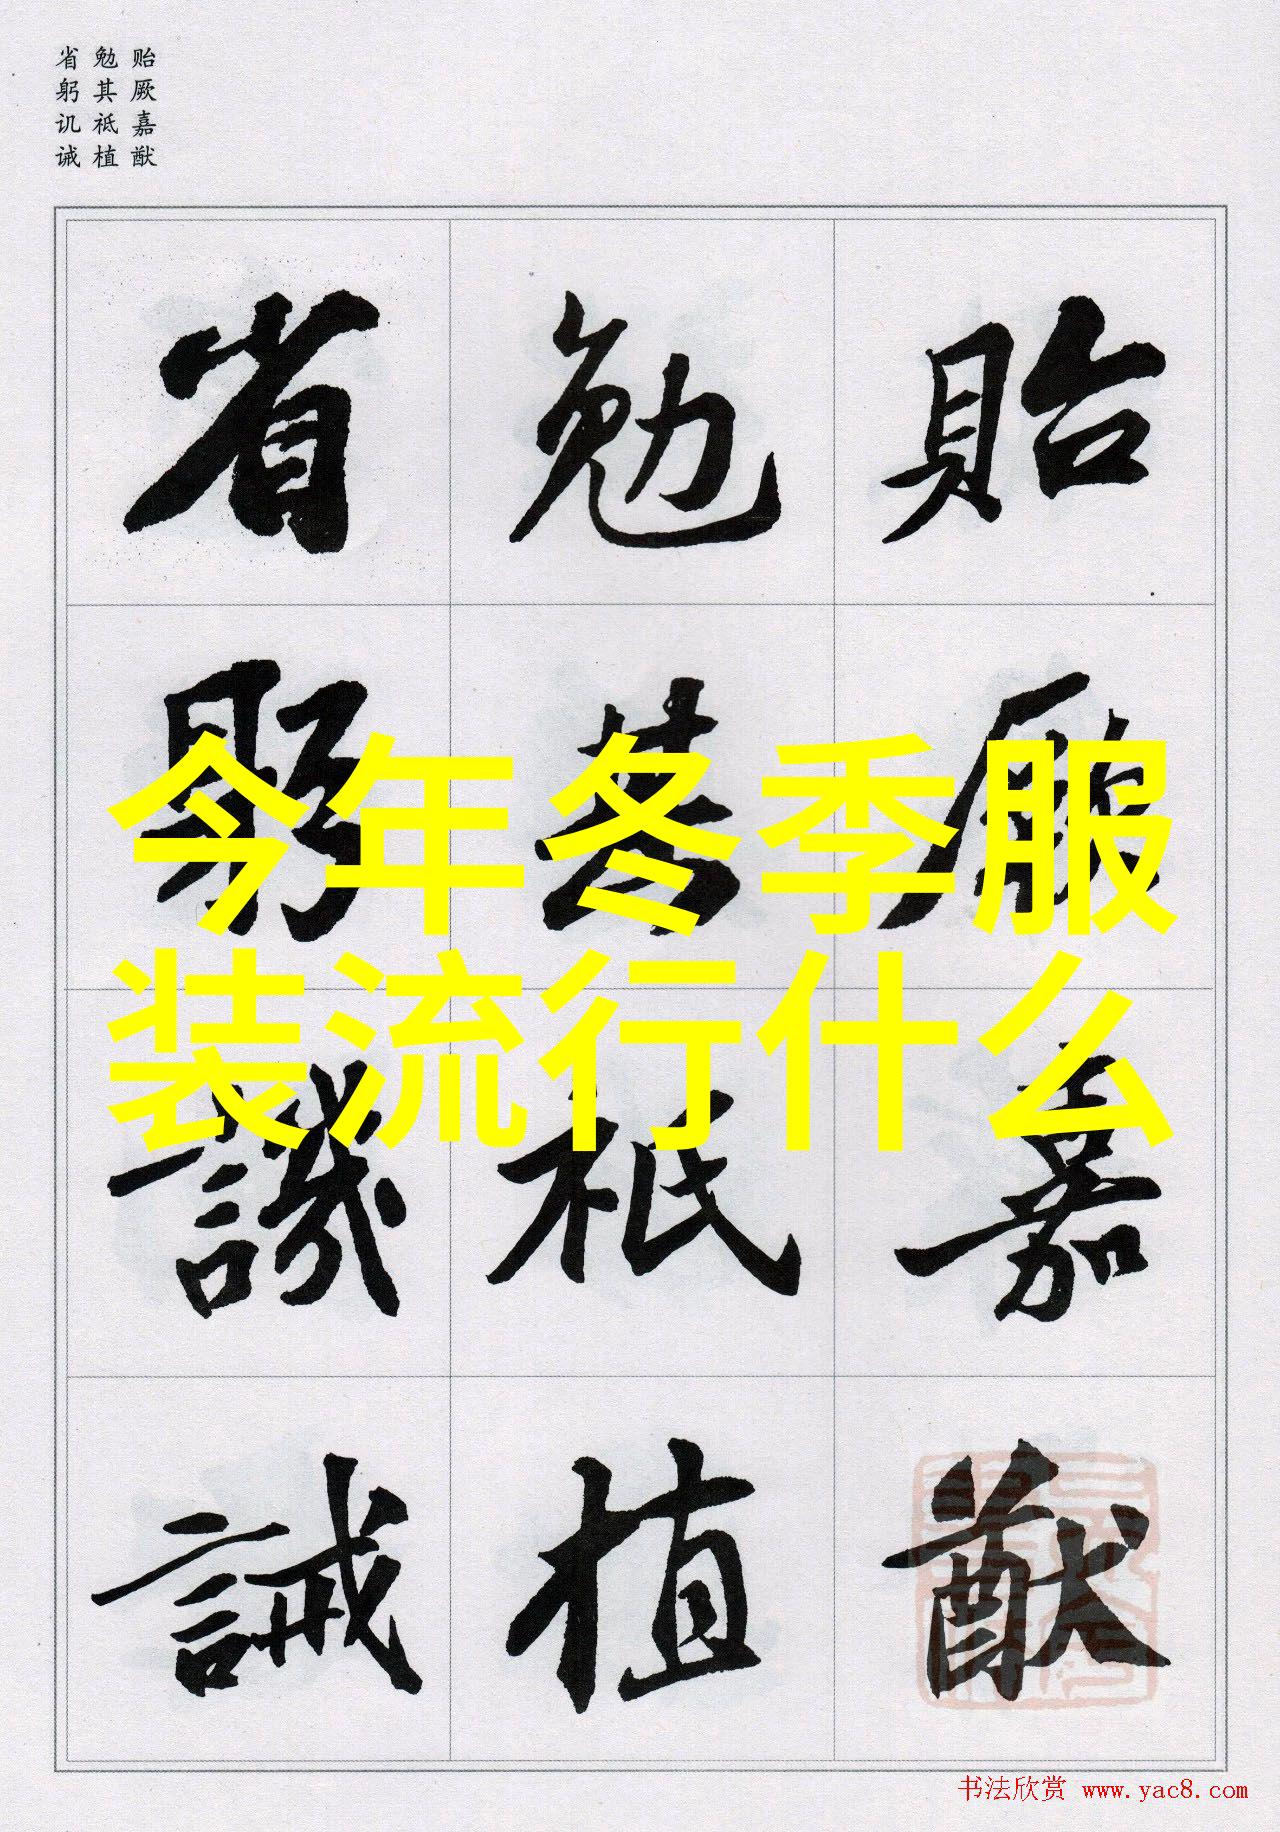 贻厥嘉猷
勉其祗植
省躬讥诫
貽厥嘉猷
勉其祗植
省躬譏誡
今年冬季服
装流行什么
书法欣赏 www.yac8.com